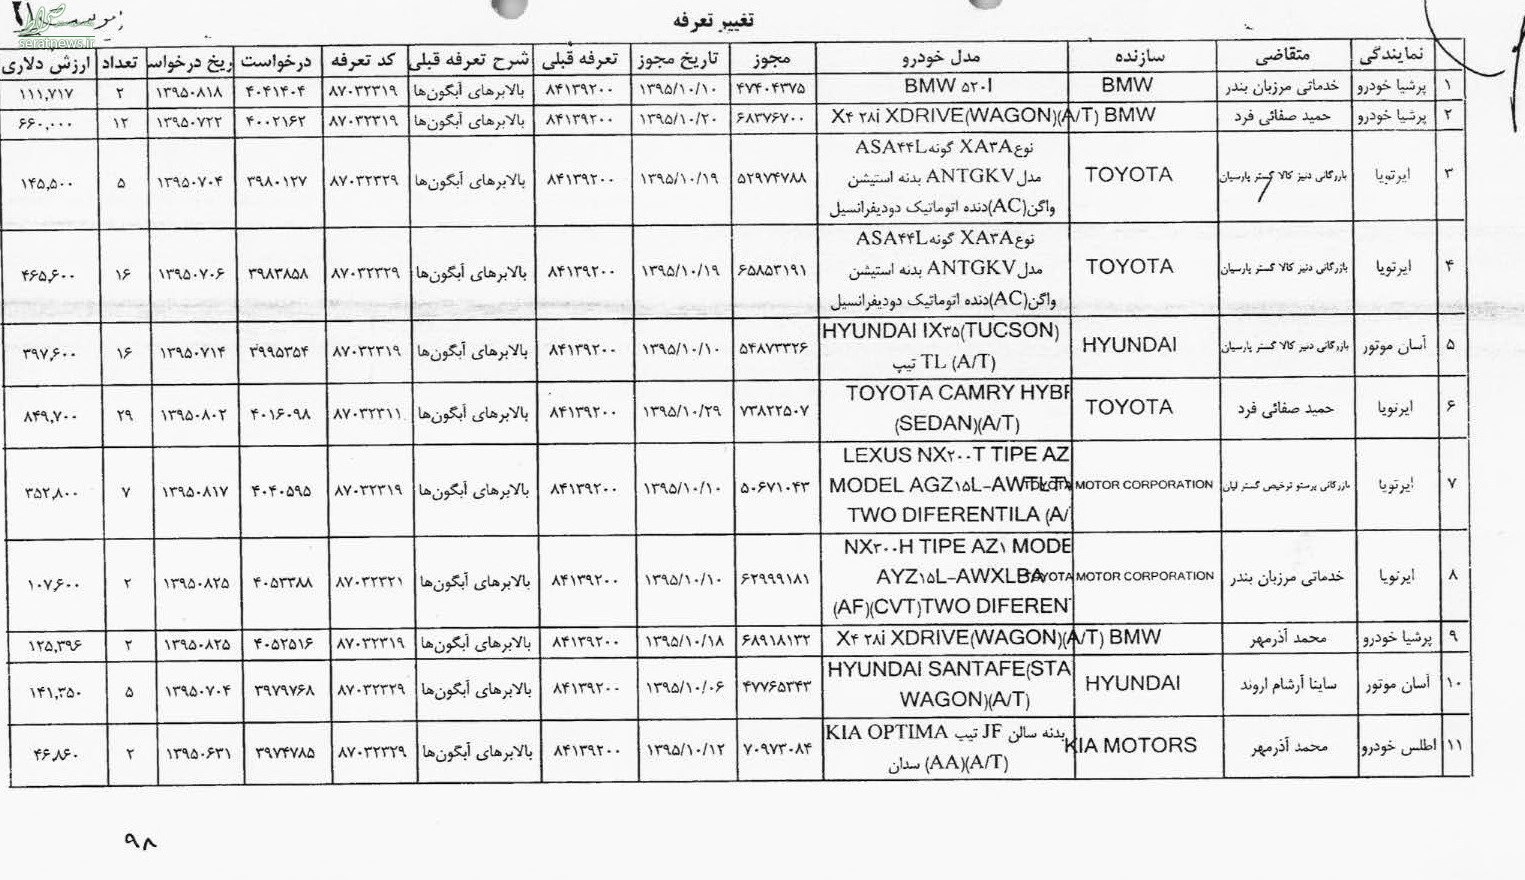 پیوست ۲۱
صراط
seratnews.ir
تغییر تعرفه
نمایندگی متقاضی سازنده مدل خودرو مجوز تاریخ مجوز تعرفه قبلی شرح تعرفه قبلی کد تعرفه درخواست ریخ درخواس تعداد ارزش دلاری
۱ پرشیا خودرو خدماتی مرزبان بندر BMW BMW ۵۲۰I ۴۷۴۰۴۳۷۵ ۱۳۹۵/۱۰/۱۰ ۸۴۱۳۹۲۰۰ بالابرهای آبگون‌ها ۸۷۰۳۲۳۱۹ ۴۰۴۱۴۰۴ ۱۳۹۵۰۸۱۸ ۲ ۱۱۱,۷۱۷
۲ پرشیا خودرو حمید صفائی فرد BMW X۴ ۲۸i XDRIVE(WAGON)(A/T) ۶۸۳۷۶۷۰۰ ۱۳۹۵/۱۰/۲۰ ۸۴۱۳۹۲۰۰ بالابرهای آبگون‌ها ۸۷۰۳۲۳۱۹ ۴۰۰۲۱۶۲ ۱۳۹۵۰۷۲۲ ۱۲ ۶۶۰,۰۰۰
نوعXA۳A گونهASA۴۴L
۳ ایرتویا بازرگانی دنیز کالا گستر پارسیان TOYOTA مدلANTGKV بدنه استیشن ۵۲۹۷۴۷۸۸ ۱۳۹۵/۱۰/۱۹ ۸۴۱۳۹۲۰۰ بالابرهای آبگون‌ها ۸۷۰۳۲۳۲۹ ۳۹۸۰۱۲۷ ۱۳۹۵۰۷۰۴ ۵ ۱۴۵,۵۰۰
واگن(AC)دنده اتوماتیک دودیفرانسیل
نوعXA۳A گونهASA۴۴L
۴ ایرتویا بازرگانی دنیز کالا گستر پارسیان TOYOTA مدلANTGKV بدنه استیشن ۶۵۸۵۳۱۹۱ ۱۳۹۵/۱۰/۱۹ ۸۴۱۳۹۲۰۰ بالابرهای آبگون‌ها ۸۷۰۳۲۳۲۹ ۳۹۸۳۸۵۸ ۱۳۹۵۰۷۰۶ ۱۶ ۴۶۵,۶۰۰
واگن(AC)دنده اتوماتیک دودیفرانسیل
HYUNDAI IX۳۵(TUCSON)
۵ آسان موتور بازرگانی دنیز کالا گستر پارسیان HYUNDAI TL (A/T) تیپ ۵۴۸۷۳۳۲۶ ۱۳۹۵/۱۰/۱۰ ۸۴۱۳۹۲۰۰ بالابرهای آبگون‌ها ۸۷۰۳۲۳۱۹ ۳۹۹۵۳۵۴ ۱۳۹۵۰۷۱۴ ۱۶ ۳۹۷,۶۰۰
TOYOTA CAMRY HYBR
۶ ایرتویا حمید صفائی فرد TOYOTA (SEDAN)(A/T) ۷۳۸۲۲۵۰۷ ۱۳۹۵/۱۰/۲۹ ۸۴۱۳۹۲۰۰ بالابرهای آبگون‌ها ۸۷۰۳۲۳۱۱ ۴۰۱۶۰۹۸ ۱۳۹۵۰۸۰۲ ۲۹ ۸۴۹,۷۰۰
LEXUS NX۲۰۰T TIPE AZ
۷ ایرتویا بازرگانی پرستو ترخیص گستر لیان TOYOTA MOTOR CORPORATION MODEL AGZ۱۵L-AWTLT ۵۰۶۷۱۰۴۳ ۱۳۹۵/۱۰/۱۰ ۸۴۱۳۹۲۰۰ بالابرهای آبگون‌ها ۸۷۰۳۲۳۱۹ ۴۰۴۰۵۹۵ ۱۳۹۵۰۸۱۷ ۷ ۳۵۲,۸۰۰
TWO DIFERENTILA (A/
NX۳۰۰H TIPE AZ۱ MODE
۸ ایرتویا خدماتی مرزبان بندر TOYOTA MOTOR CORPORATION AYZ۱۵L-AWXLBA ۶۲۹۹۹۱۸۱ ۱۳۹۵/۱۰/۱۰ ۸۴۱۳۹۲۰۰ بالابرهای آبگون‌ها ۸۷۰۳۲۳۲۱ ۴۰۵۳۳۸۸ ۱۳۹۵۰۸۲۵ ۲ ۱۰۷,۶۰۰
(AF)(CVT)TWO DIFEREN
۹ پرشیا خودرو محمد آذرمهر BMW X۴ ۲۸i XDRIVE(WAGON)(A/T) ۶۸۹۱۸۱۳۲ ۱۳۹۵/۱۰/۱۸ ۸۴۱۳۹۲۰۰ بالابرهای آبگون‌ها ۸۷۰۳۲۳۱۹ ۴۰۵۲۵۱۶ ۱۳۹۵۰۸۲۵ ۲ ۱۲۵,۳۹۶
HYUNDAI SANTAFE(STA
۱۰ آسان موتور ساینا آرشام اروند HYUNDAI WAGON)(A/T) ۴۷۷۶۵۳۴۳ ۱۳۹۵/۱۰/۰۶ ۸۴۱۳۹۲۰۰ بالابرهای آبگون‌ها ۸۷۰۳۲۳۲۹ ۳۹۷۹۷۶۸ ۱۳۹۵۰۷۰۴ ۵ ۱۴۱,۳۵۰
بدنه سالن JF تیپ KIA OPTIMA
۱۱ اطلس خودرو محمد آذرمهر KIA MOTORS (A/T)(AA) سدان ۷۰۹۷۳۰۸۴ ۱۳۹۵/۱۰/۱۲ ۸۴۱۳۹۲۰۰ بالابرهای آبگون‌ها ۸۷۰۳۲۳۲۹ ۳۹۷۴۷۸۵ ۱۳۹۵۰۶۳۱ ۲ ۴۶,۸۶۰
۹۸